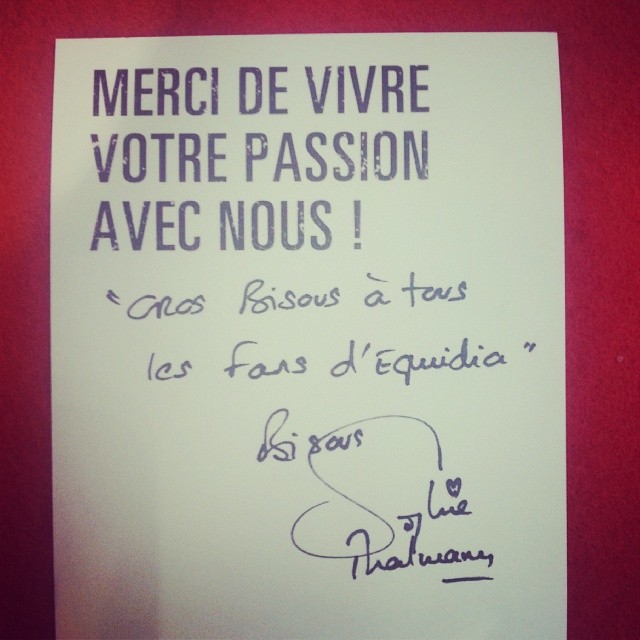 MERCI DE VIVRE
VOTRE PASSION
AVEC NOUS !
"Gros Bisous à tous
les fans d'Equidia"
Bisous
Sophie
Thalmann